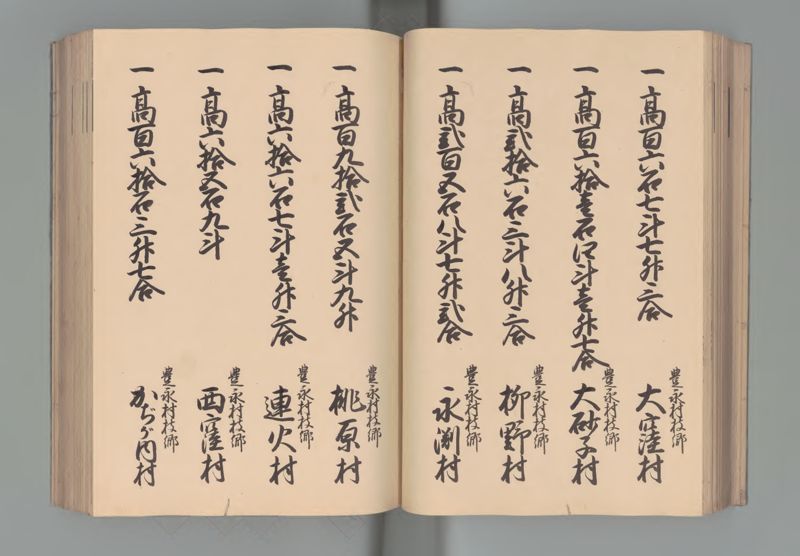 一 高百六石七斗七升三合
豊永村枝郷
大窪村
一 高百六拾壱石四斗壱升七合
豊永村枝郷
大砂子村
一 高弐拾六石三斗八升三合
豊永村枝郷
柳野村
一 高弐百五石八斗七升弐合
豊永村枝郷
永渕村
一 高百九拾弐石五斗九升
豊永村枝郷
桃原村
一 高六拾六石七斗壱升三合
豊永村枝郷
連火村
一 高六拾五石九斗
豊永村枝郷
西窪村
一 高百六拾石三升七合
豊永村枝郷
かぢヶ内村